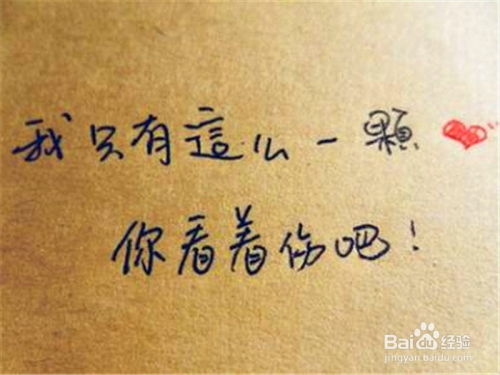 我只有這么一顆
你看着伤吧！
Bai经验
jingyan.baidu.com